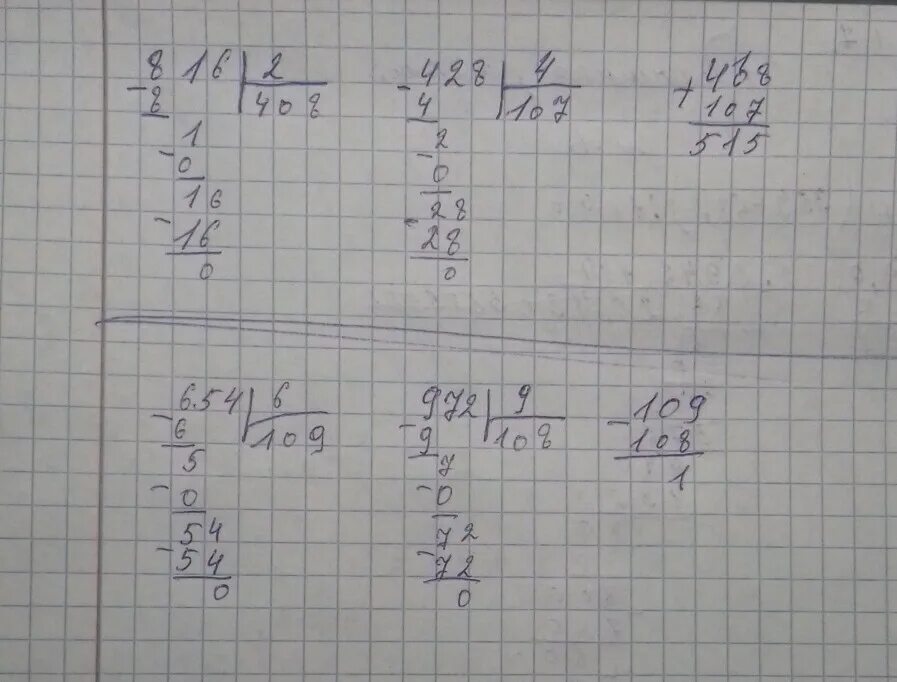 816 | 2
- 8 | 408
1
- 0
16
- 16
0
428 | 4
- 4 | 107
2
- 0
28
- 28
0
+ 408
107
515
654 | 6
- 6 | 109
5
- 0
54
- 54
0
972 | 9
- 9 | 108
7
- 0
72
- 72
0
- 109
108
1